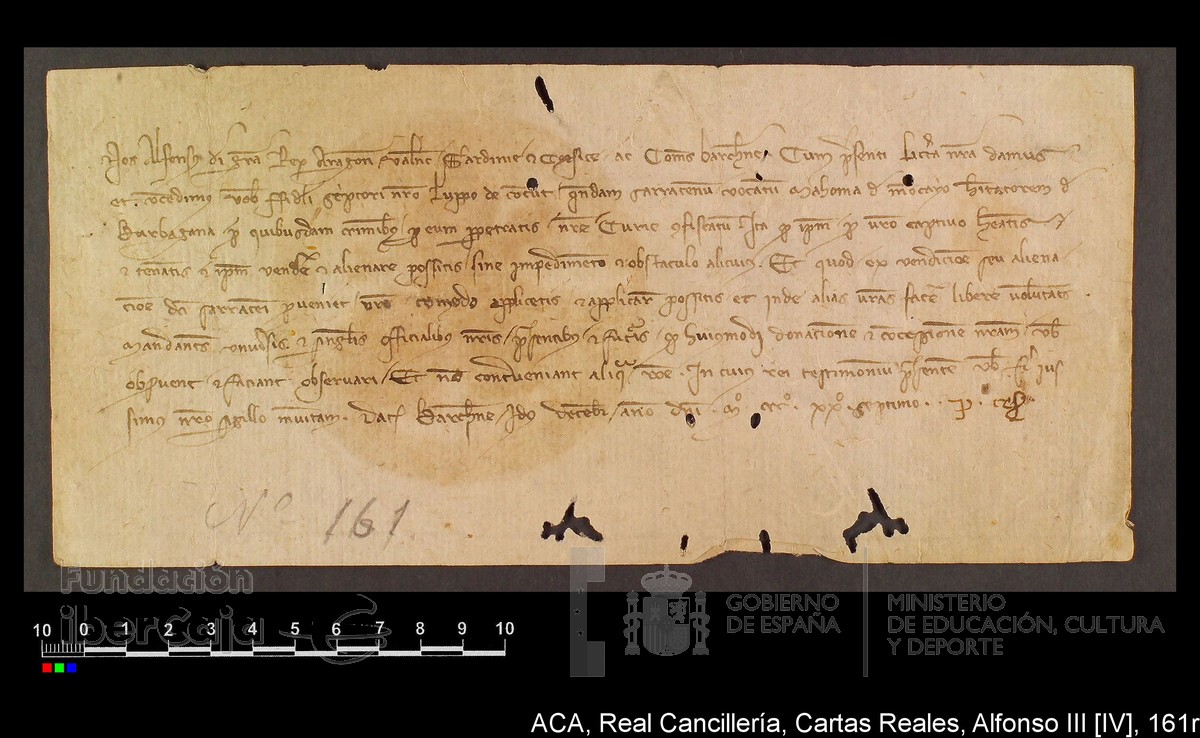 Nos Alfonsus dei gra Rex Aragon Valnc Sardinie et Corsice ac Comes barchne Cum psenti lictera nra damus
et concedimus vob ffideli scriptori nro Luppo de quendam sarracenu vocatu Mahoma d hitatorem d
p quibusdam criminib p eum ppetratis nre Curie confiscatu Ita q ipm p vro captivo heatis
et teneatis et ipm vendere et alienare possitis sine impedimeto et obstaculo alicuius Et quod ex vendicioe seu aliena
cioe dci sarraceni pveniet vro comodo applicetis et applicare possitis et inde alias vras facere libere voluntates
Mandantes universis et singlis officialibus nris psentibus et futuris q huiusmodi donatione et concessione nram vob
observent et faciant observari Et no contraveniant aliqua roe In cuius rei testimoniu psente vob fi ius
simus nro sigillo munitam Dat Barchne Idus decebr anno dni Mo CCCo XXo septimo
No 161
Fundación
ibercaja
10 0 1 2 3 4 5 6 7 8 9 10
GOBIERNO
DE ESPAÑA
MINISTERIO
DE EDUCACIÓN, CULTURA
Y DEPORTE
ACA, Real Cancillería, Cartas Reales, Alfonso III [IV], 161r